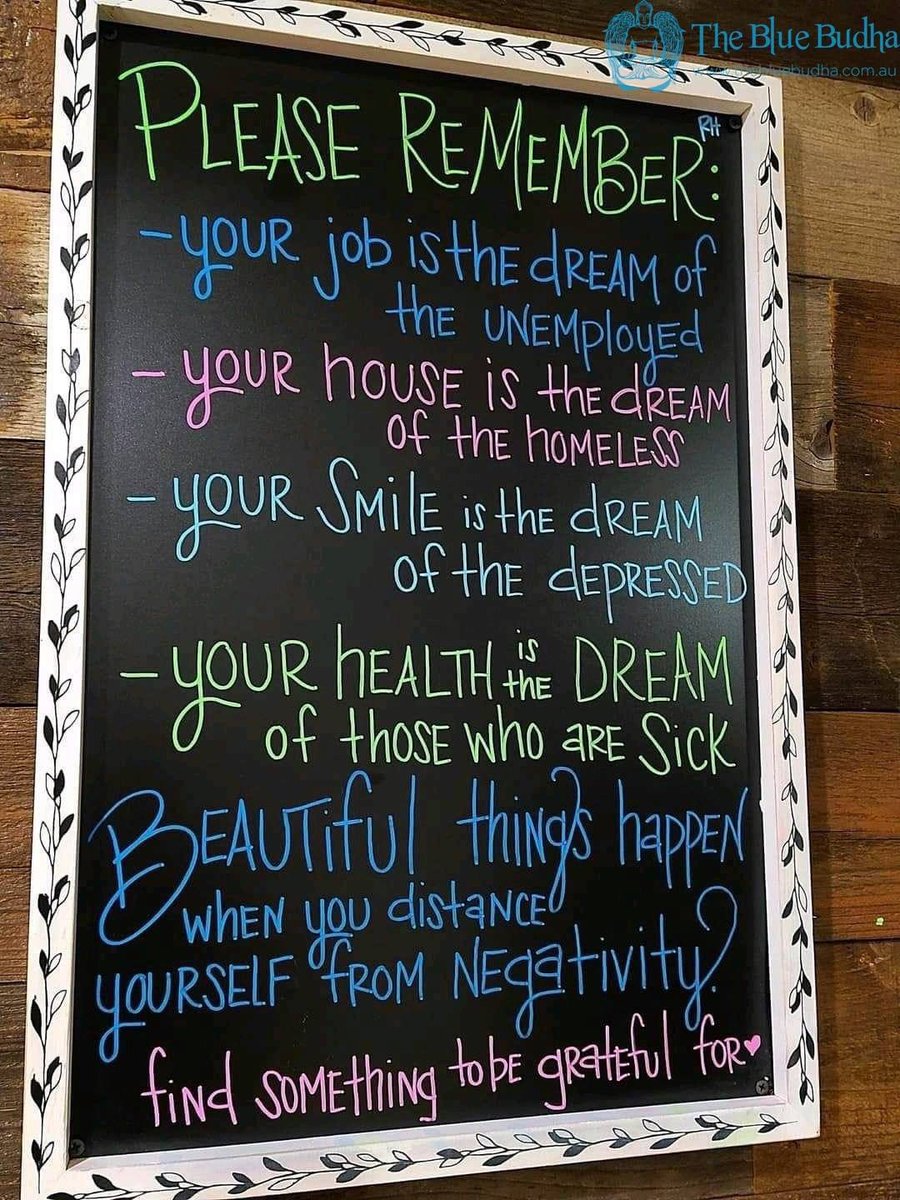 The Blue Budha
PLEASE REMEMBER:
RH
- YOUR job is the dREAM of
the UNEMployed
- YOUR hOUSE is the dREAM
of the hOMELESS
- YOUR SMiLE is the dREAM
of the dEPRESSED
- YOUR hEALTH is the DREAM
of those who are Sick
BEAUTiful things happen
when you distance
yourself from negativity.
find something to be grateful for ♥